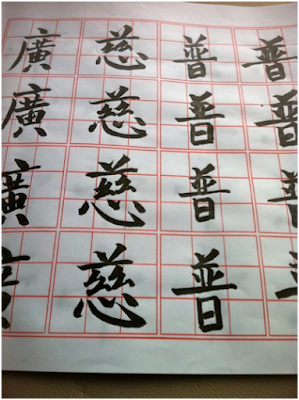 普普普
普普普普
慈慈慈慈
廣廣廣廣